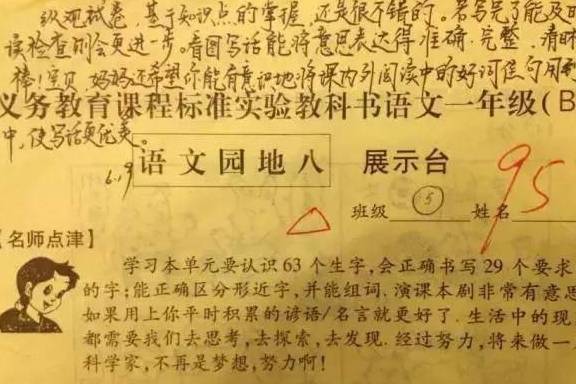 纵观试卷,基于知识点的掌握,还是很不错的。若写完了能及时
误检查则会更进一步。看图写话能将意思表达得准确、完整、清晰
棒!宝贝,妈妈还希望你能有意识地将课内外阅读中的好词佳句用到
义务教育课程标准实验教科书语文一年级(B
中,使写话更优美。
语文园地八 展示台
6.19
95
班级 5 姓名
【名师点津】
学习本单元要认识63个生字,会正确书写29个要求
的字;能正确区分形近字,并能组词。演课本剧非常有意思
如果用上你平时积累的谚语/名言就更好了。生活中的现
都需要我们去思考,去探索,去发现。经过努力,将来做一
科学家,不再是梦想,努力啊!